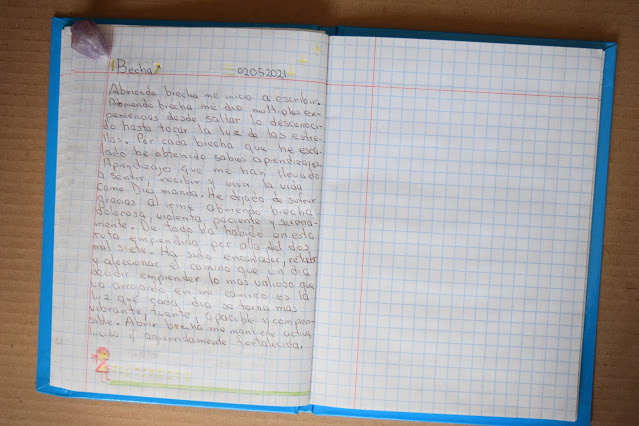 ¡Becha!
02052021
Abriendo brecha me inicio a escribir.
Abriendo brecha me dio multiples ex-
periencias desde saltar lo desconoci-
do hasta tocar la luz de las estre-
llas. Por cada brecha que he esca-
lado he obtenido sabios aprendizajes.
Aprendizaje que me han llevado
a sentir, recibir y vivir la vida
como Dios manda. He dejado de sufrir
gracias al irme abriendo brecha
dolorosa, violenta, paciente y serena-
mente. De todo ha habido en esta
ruta emprendida por alla del dos
mil siete. Ha sido encantador,
y aleccionar el camino que un dia
decidir emprender lo mas valioso que
va arrojando en mi camino es la
luz que cada dia se torna mas
vibrante, fuerte, apacible y compen-
sible. Abrir brecha me mantiene activa,
lucida y aguerridamente fortalecida.